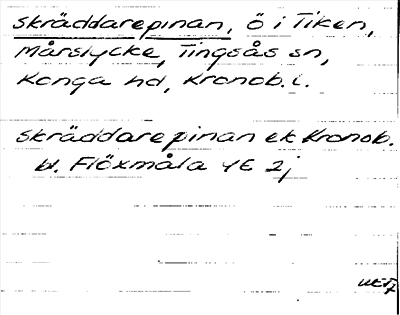 Skräddarepinan, ö i Tiken,
Mårslycke, Tingsås sn,
Konga hd, Kronob. l.
Skräddarepinan ek Kronob.
bl. Flöxmåla 4E 2j